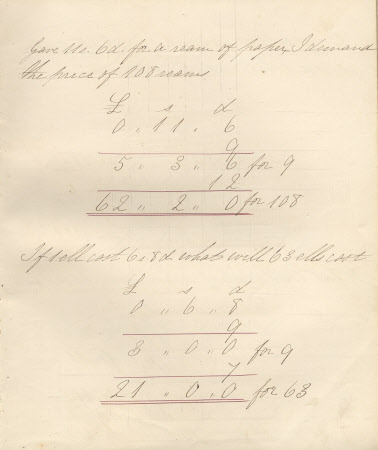 Gave 11s. 6d. for a ream of paper, I demand
the price of 108 reams
£ s d
0 „ 11 „ 6
9
5 „ 3 „ 6 for 9
12
62 „ 2 „ 0 for 108
If 1 ell cost 6s 8d what will 63 ells cost
£ s d
0 „ 6 „ 8
9
3 „ 0 „ 0 for 9
7
21 „ 0 „ 0 for 63